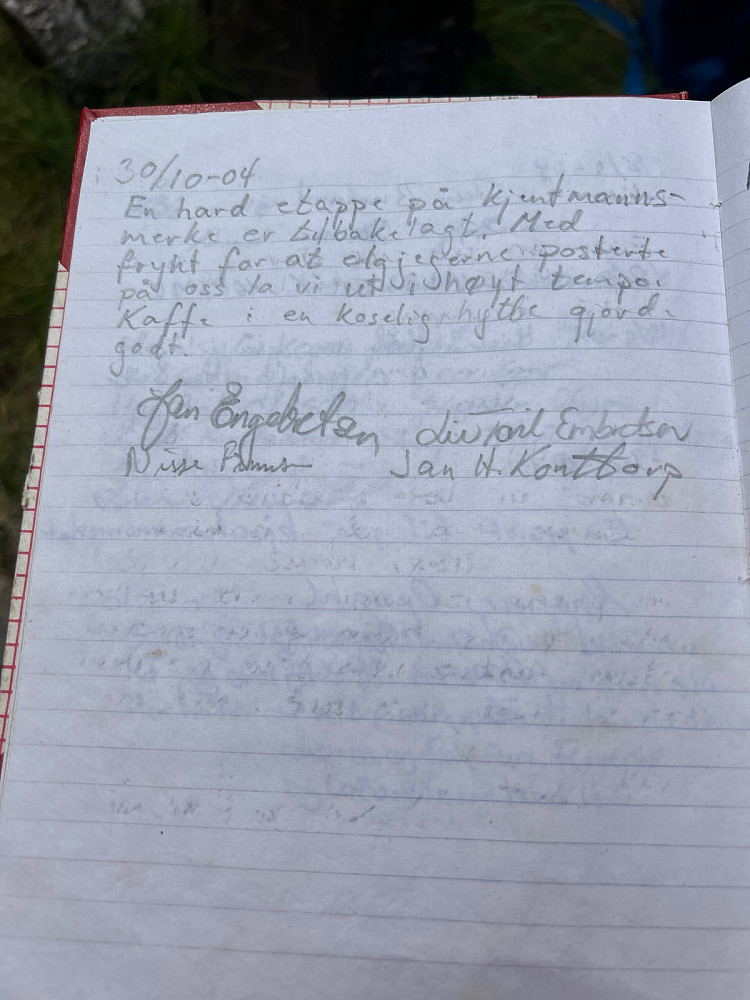 30/10-04
En hard etappe på kjentmanns-
merke er tilbakelagt. Med
frykt for at elgjegerne posterte
på oss la vi ut i høyt tempo.
Kaffe i en koselig hytte gjorde
godt.
Jan Engebretsen Embretsen
Nisse Jan H.